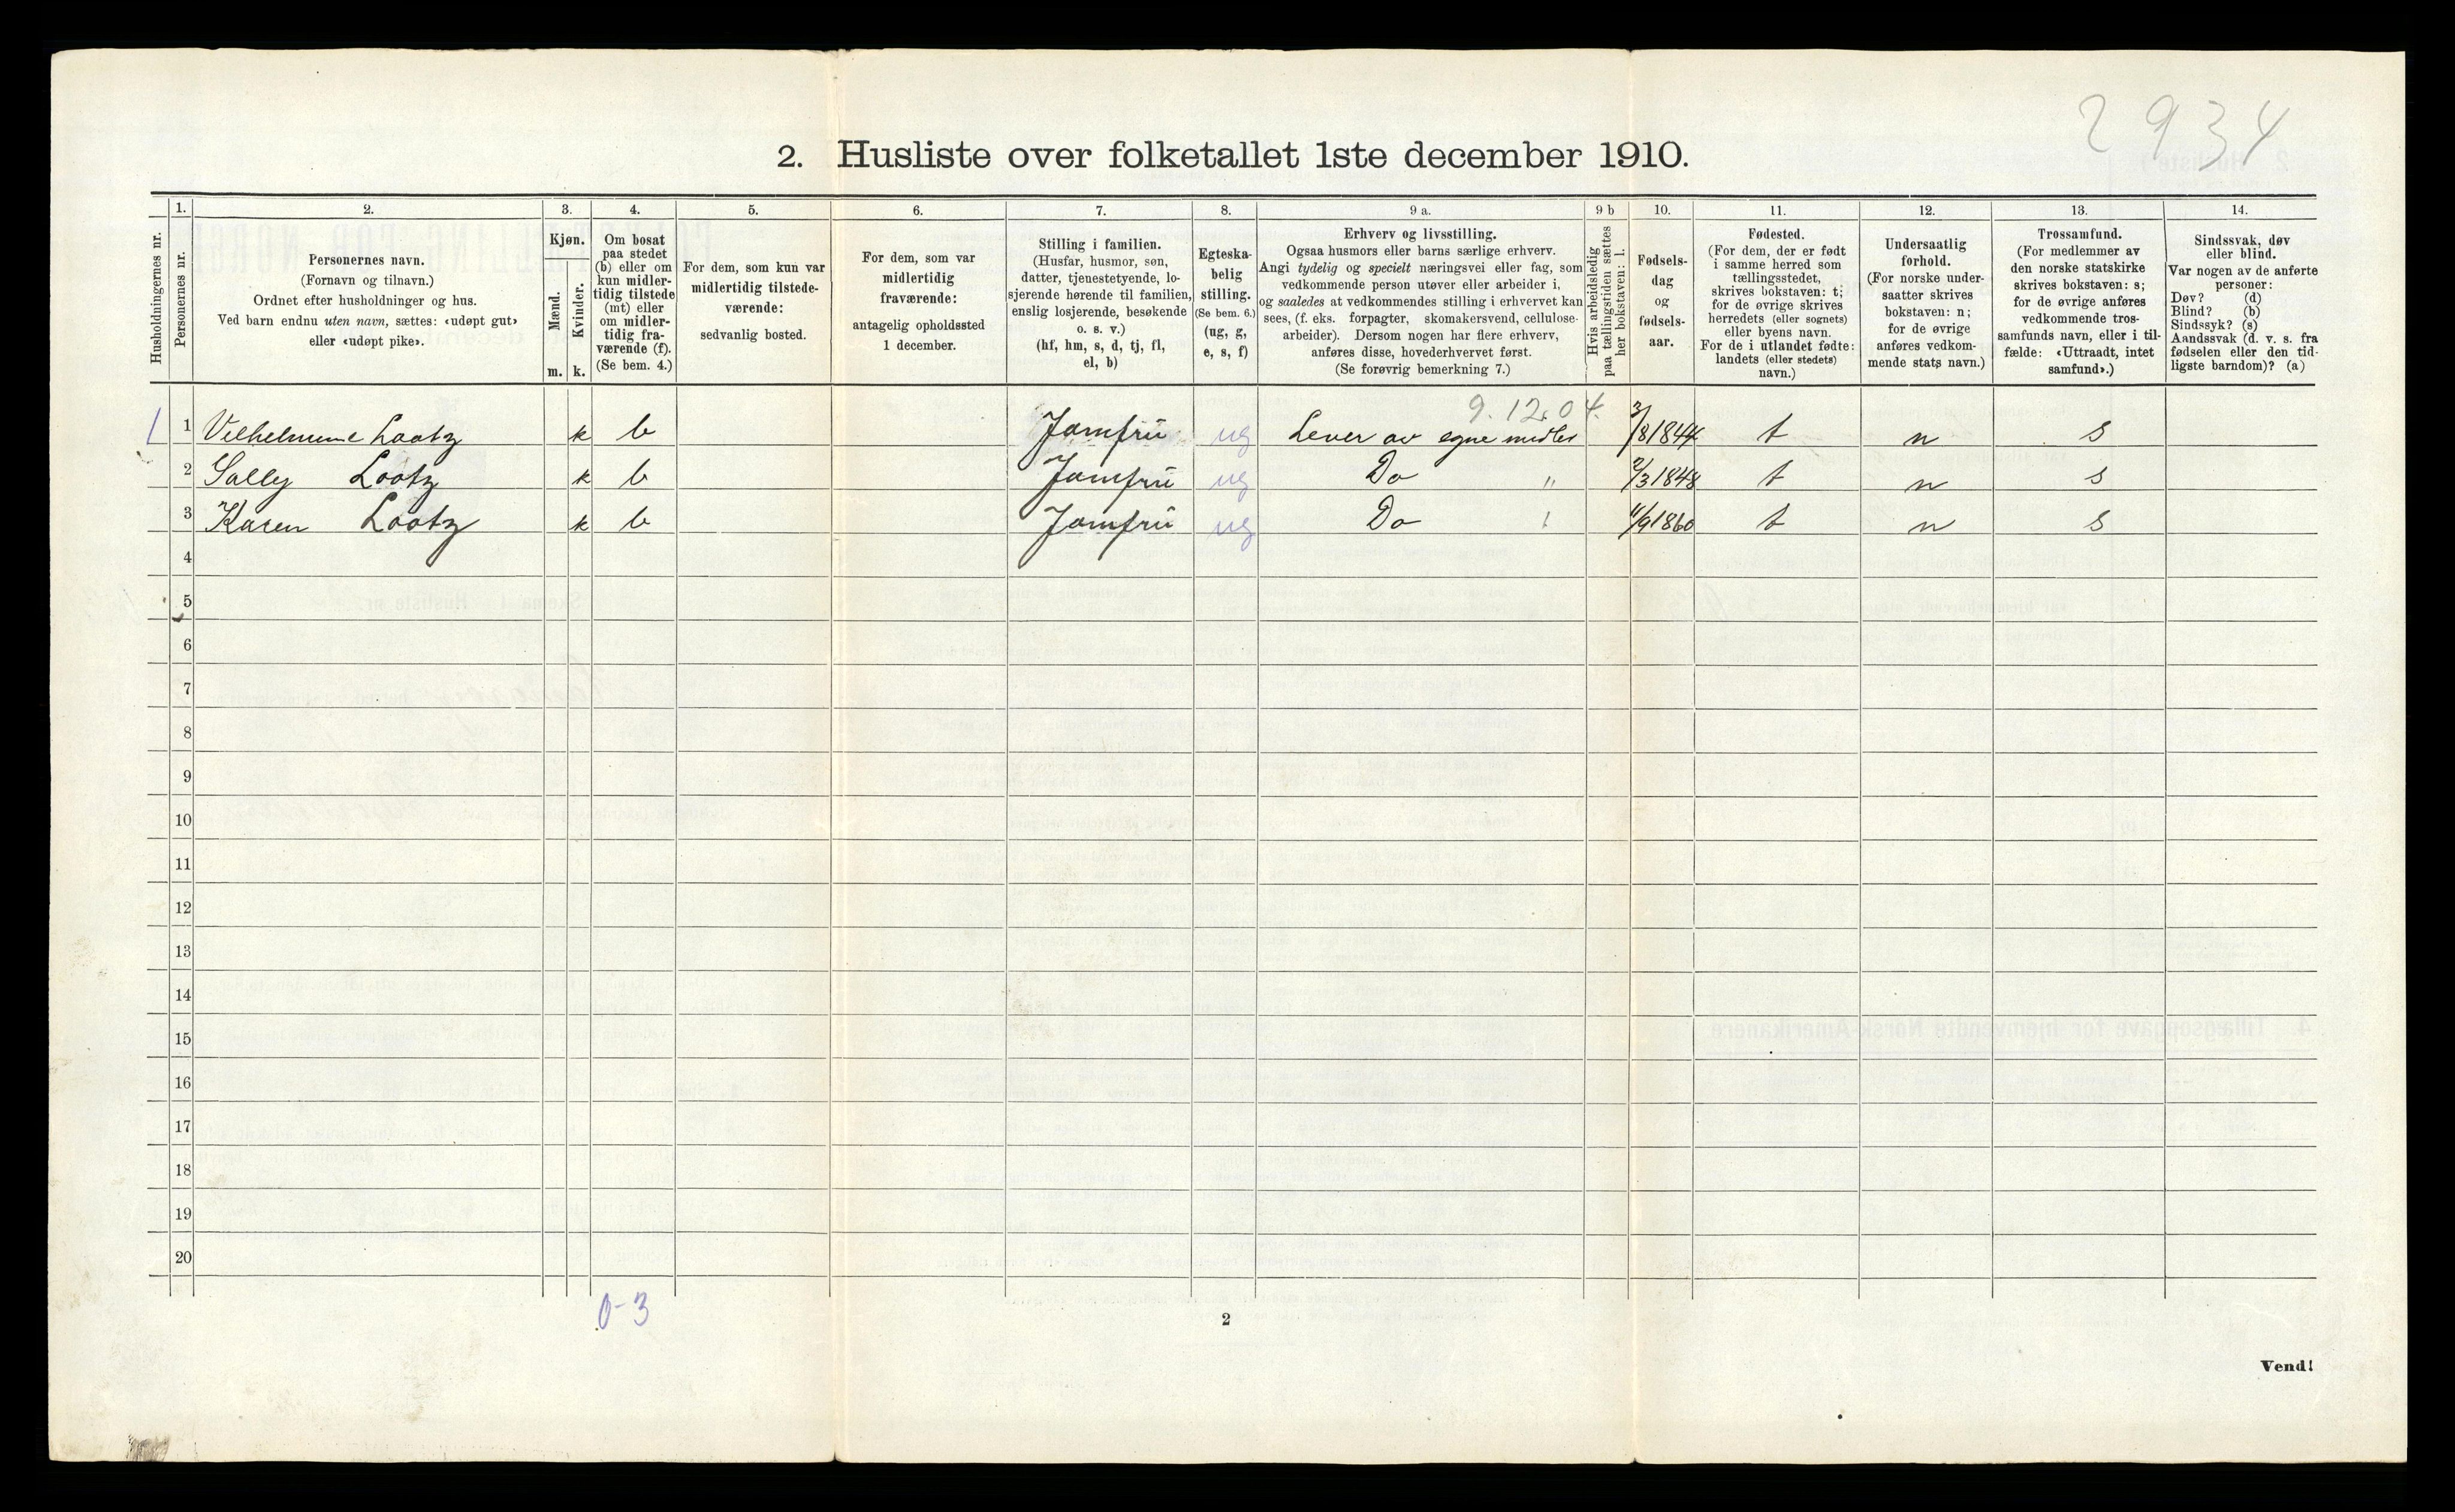 2934
2. Husliste over folketallet 1ste december 1910.
Husholdningernes nr.
1.
Personernes nr.
2.
Personernes navn.
(Fornavn og tilnavn.)
Ordnet efter husholdninger og hus.
Ved barn endnu uten navn, sættes: «udøpt gut»
eller «udøpt pike».
3.
Kjøn.
Mænd.
Kvinder.
m. k.
4.
Om bosat
paa stedet
(b) eller om
kun midler-
tidig tilstede
(mt) eller
om midler-
tidig fra-
værende (f).
(Se bem. 4.)
5.
For dem, som kun var
midlertidig tilstede-
værende:
sedvanlig bosted.
6.
For dem, som var
midlertidig
fraværende:
antagelig opholdssted
1 december.
7.
Stilling i familien.
(Husfar, husmor, søn,
datter, tjenestetyende, lo-
sjerende hørende til familien,
enslig losjerende, besøkende
o. s. v.)
(hf, hm, s, d, tj, fl,
el, b)
8.
Egteska-
belig
stilling.
(Se bem. 6.)
(ug, g,
e, s, f)
9 a.
Erhverv og livsstilling.
Ogsaa husmors eller barns særlige erhverv.
Angi tydelig og specielt næringsvei eller fag, som
vedkommende person utøver eller arbeider i,
og saaledes at vedkommendes stilling i erhvervet kan
sees, (f. eks. forpagter, skomakersvend, cellulose-
arbeider). Dersom nogen har flere erhverv,
anføres disse, hovederhvervet først.
(Se forøvrig bemerkning 7.)
9 b
Hvis arbeidsledig
paa tællingstiden sættes
her bokstaven: l.
10.
Fødsels-
dag
og
fødsels-
aar.
11.
Fødested.
(For dem, der er født
i samme herred som
tællingsstedet,
skrives bokstaven: t;
for de øvrige skrives
herredets (eller sognets)
eller byens navn.
For de i utlandet fødte:
landets (eller stedets)
navn.)
12.
Undersaatlig
forhold.
(For norske under-
saatter skrives
bokstaven: n;
for de øvrige
anføres vedkom-
mende stats navn.)
13.
Trossamfund.
(For medlemmer av
den norske statskirke
skrives bokstaven: s;
for de øvrige anføres
vedkommende tros-
samfunds navn, eller i til-
fælde: «Uttraadt, intet
samfund».)
14.
Sindssvak, døv
eller blind.
Var nogen av de anførte
personer:
Døv? (d)
Blind? (b)
Sindssyk? (s)
Aandssvak (d. v. s. fra
fødselen eller den tid-
ligste barndom)? (a)
9.12.04.
1 1 Vilhelmine Lootz k b Jomfrü ug Lever av egne midler /8 1844 t n s
2 Sally Lootz k b Jomfrü ug Do " 2/3 1848 t n s
3 Karen Lootz k b Jomfrü ug Do 11/9 1860 t n s
4
5
6
7
8
9
10
11
12
13
14
15
16
17
18
19
20
0-3
2
Vend!